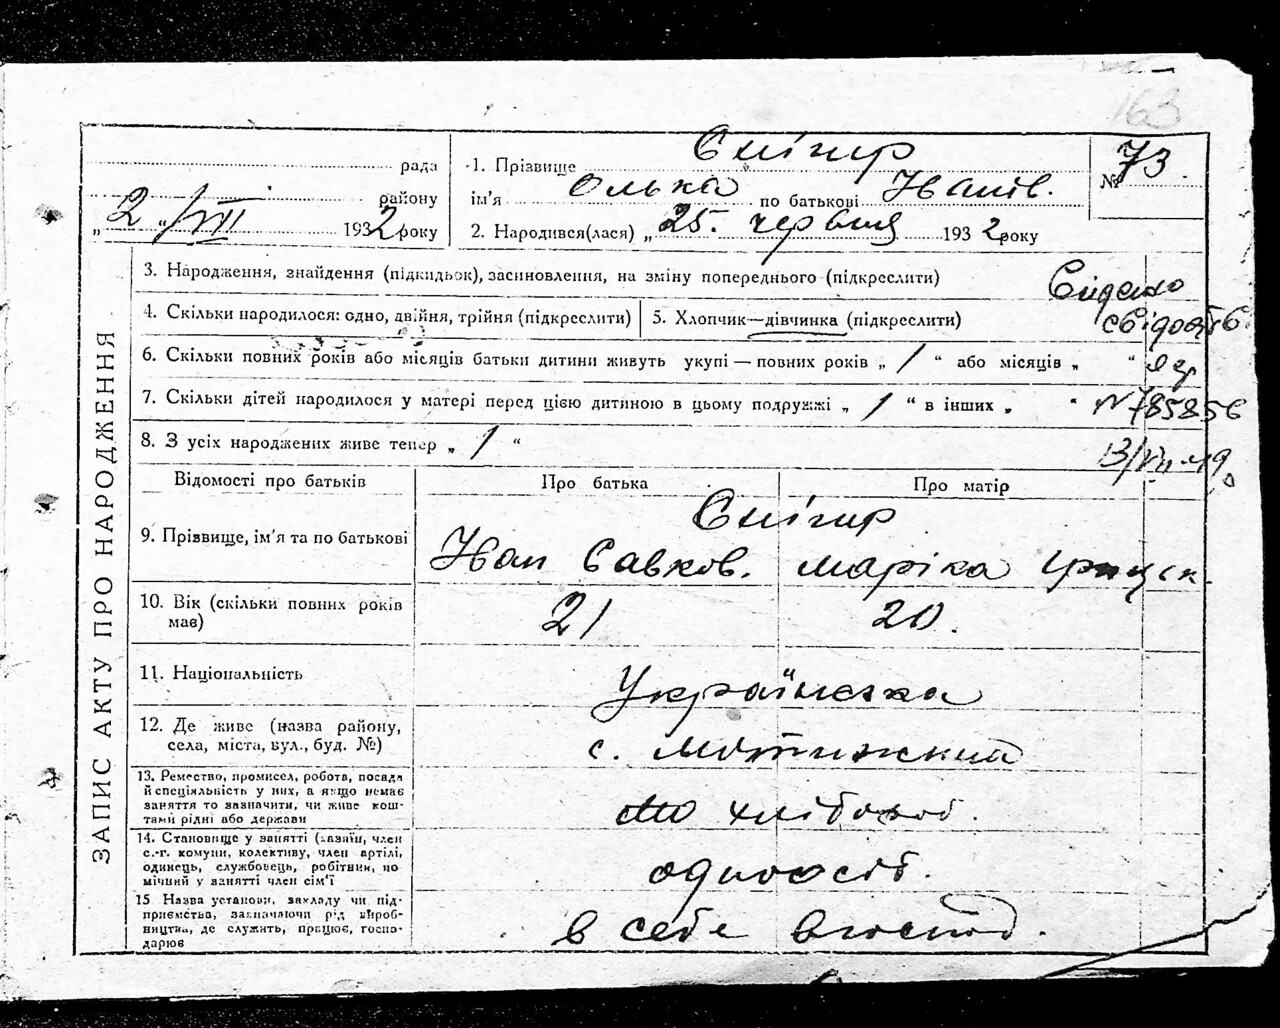 163
рада
району
„ 2 „ /VII 1932 року
1. Прізвище Снігир
ім'я Олька по батькові Іванів.
2. Народився(лася) „ 25. червня 1932 року
№ 73.
ЗАПИС АКТУ ПРО НАРОДЖЕННЯ
3. Народження, знайдення (підкидьок), засиновлення, на зміну попереднього (підкреслити)
4. Скільки народилося: одно, двійня, трійня (підкреслити)
5. Хлопчик—дівчинка (підкреслити)
6. Скільки повних років або місяців батьки дитини живуть укупі — повних років „ 1 “ або місяців „ “
7. Скільки дітей народилося у матері перед цією дитиною в цьому подружжі „ 1 “ в інших „ “
8. З усіх народжених живе тепер „ 1 “
№ 785856
Відомості про батьків
Про батька
Про матір
9. Прізвище, ім'я та по батькові
Снігир
Іван Савков. Маріка Грицск.
10. Вік (скільки повних років
має)
21
20.
11. Національність
Українська
12. Де живе (назва району,
села, міста, вул., буд. №)
с. Мотижкий
13. Ремество, промисел, робота, посада
й спеціяльність у них, а якщо немає
заняття то зазначити, чи живе кош-
тами рідні або держави
хлібороб.
14. Становище у занятті (хазяїн, член
с.-г. комуни, колективу, член артілі,
одинець, службовець, робітник, по
мічний у занятті член сім'ї
одноосіб.
15 Назва установи, закладу чи під-
приємства, зазначаючи рід вироб-
ництва, де служить, працює, госпо-
дарює
в себе в господ.